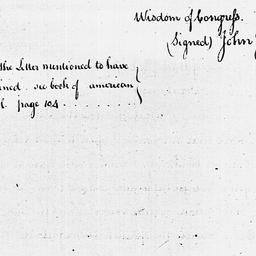 Wisdom of Congress.
(Signed) John
the Letter mentioned to have
ined see book of american
page 104 . . . . . . . .